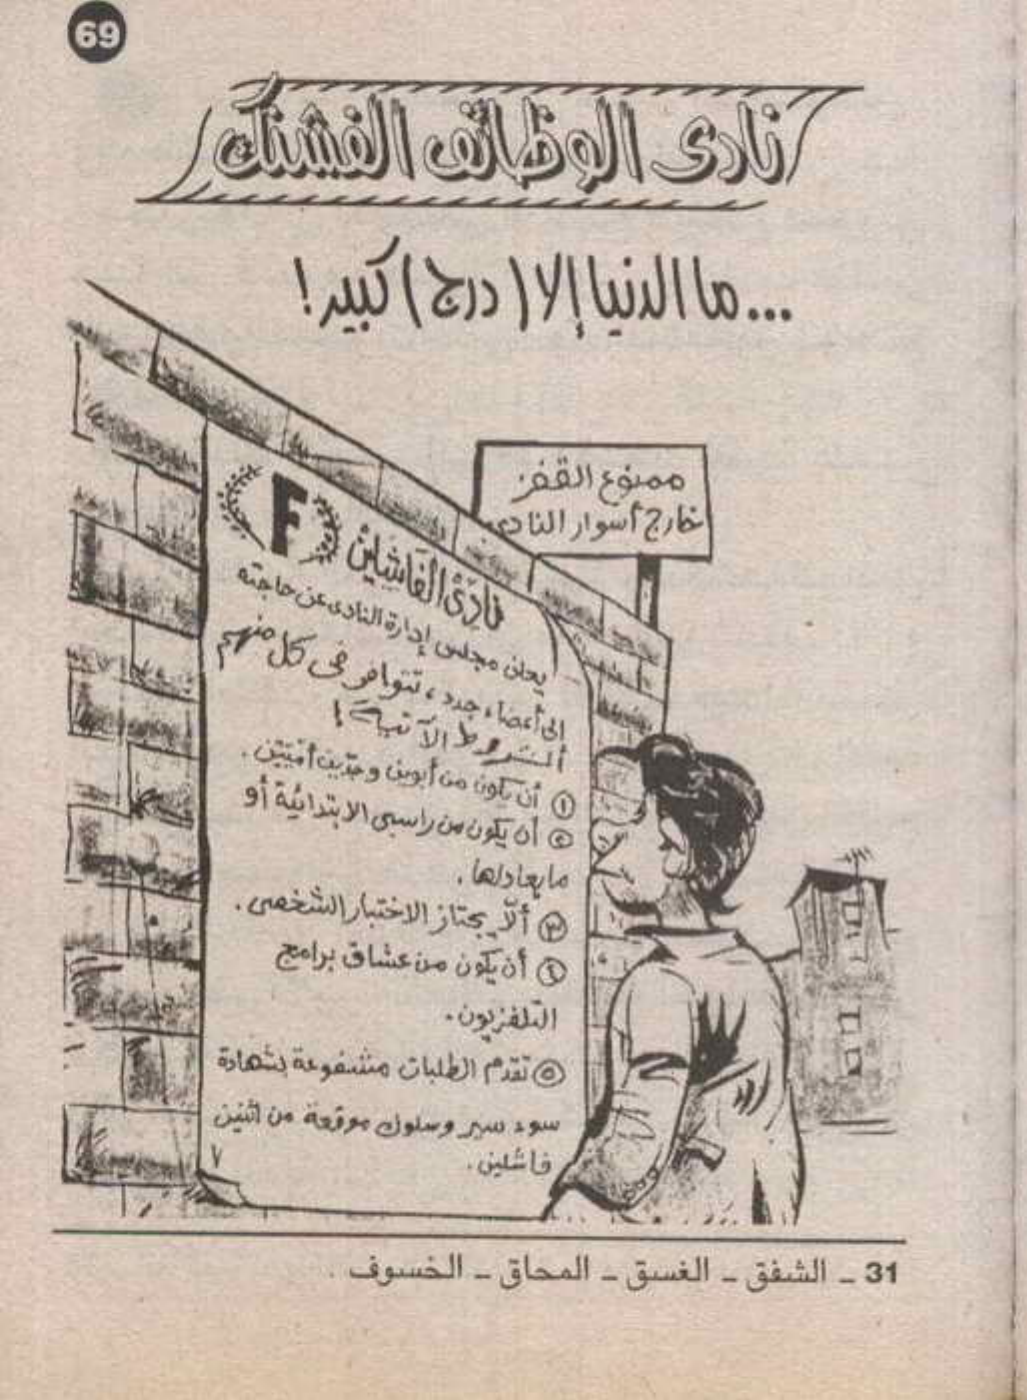 69
نادى الوظائف الفشنك
...ما الدنيا إلا (درج) كبير!
ممنوع القفز
خارج أسوار النادى
F
نادى الفاشلين
يعلن مجلس إدارة النادى عن حاجته
إلى أعضاء جدد، تتوافر فى كل منهم
الشروط الآتية!
١ أن يكون من أبوين وجدين أميين.
٢ أن يكون من راسبى الابتدائية أو
ما يعادلها.
٣ ألا يجتاز الاختبار الشخصى.
٤ أن يكون من عشاق برامج
التلفزيون.
٥ تقدم الطلبات مشفوعة بشهادة
سوء سير وسلوك موقعة من اثنين
فاشلين.
٧
31 ـ الشفق ـ الغسق ـ المحاق ـ الخسوف .